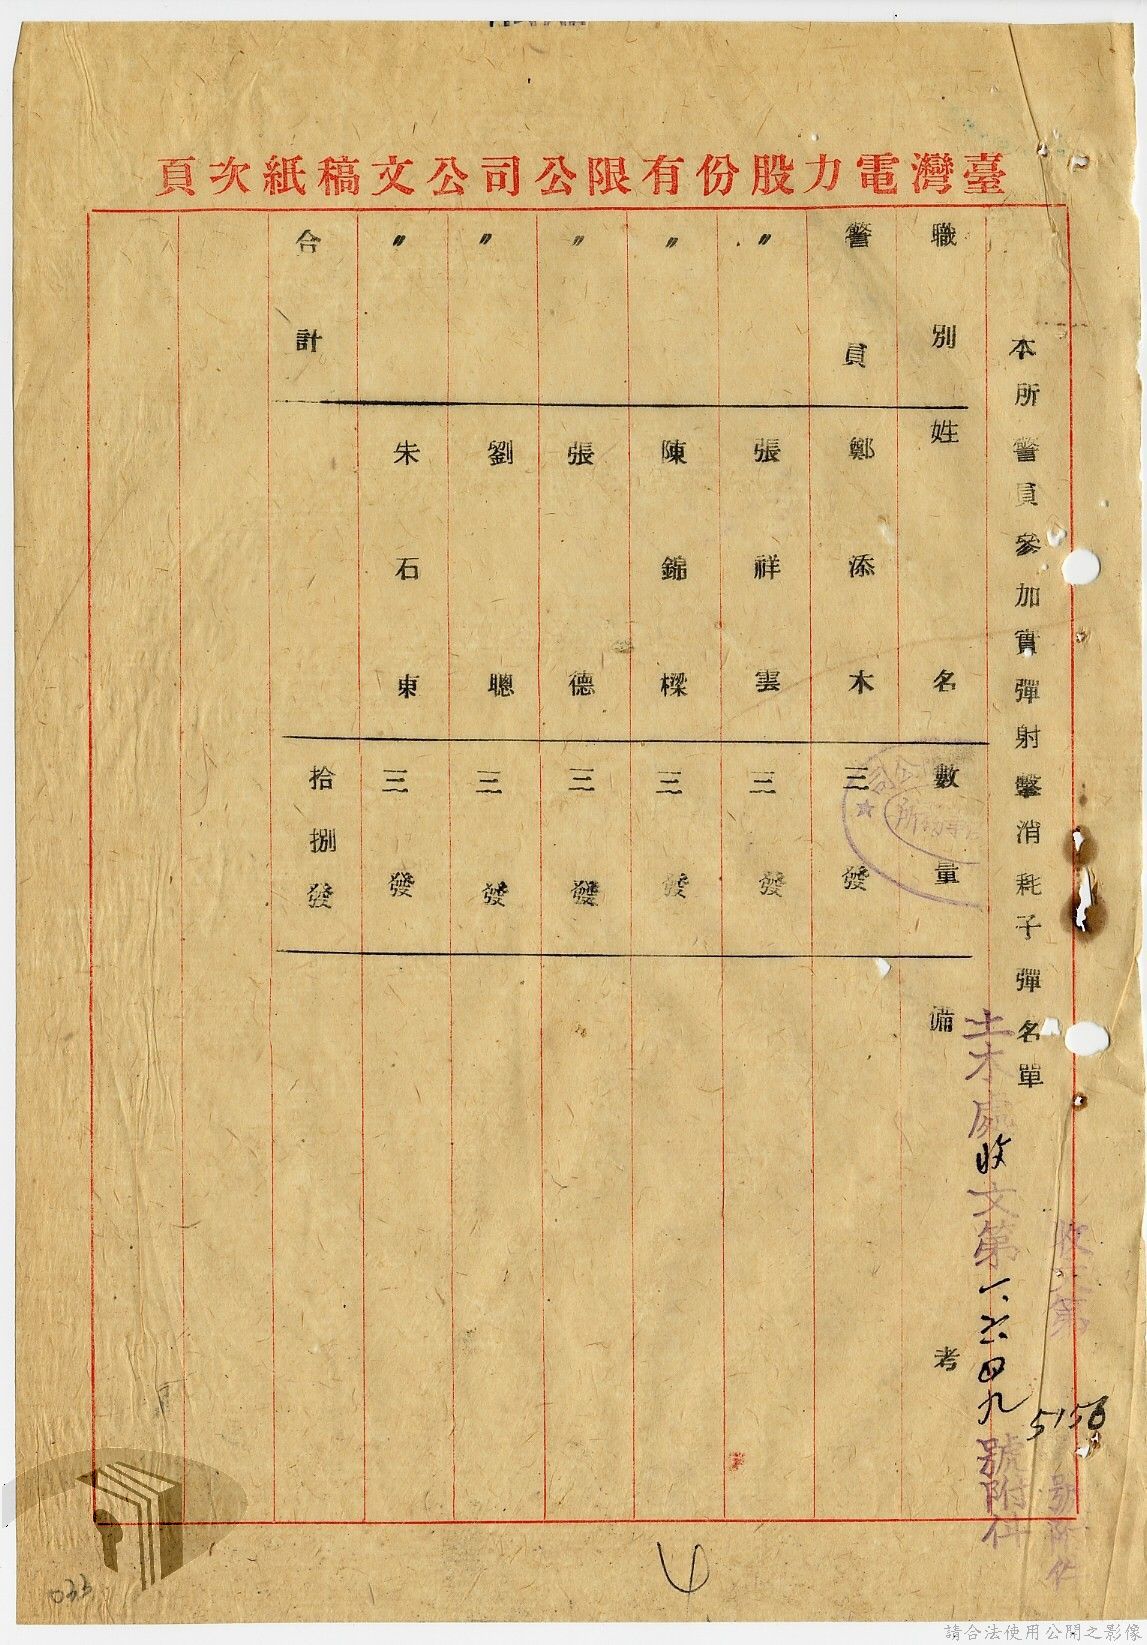 臺灣電力股份有限公司公文稿紙次頁
本所警員參加實彈射擊消耗子彈名單
職別 姓名 數量 備考
警員 鄭添木 三發
〃 張祥雲 三發
〃 陳錦樑 三發
〃 張德 三發
〃 劉聰 三發
〃 朱石東 三發
合計 拾捌發
土木處收文第一六四九號附件
收文第5156號附件
公司
033
請合法使用公開之影像